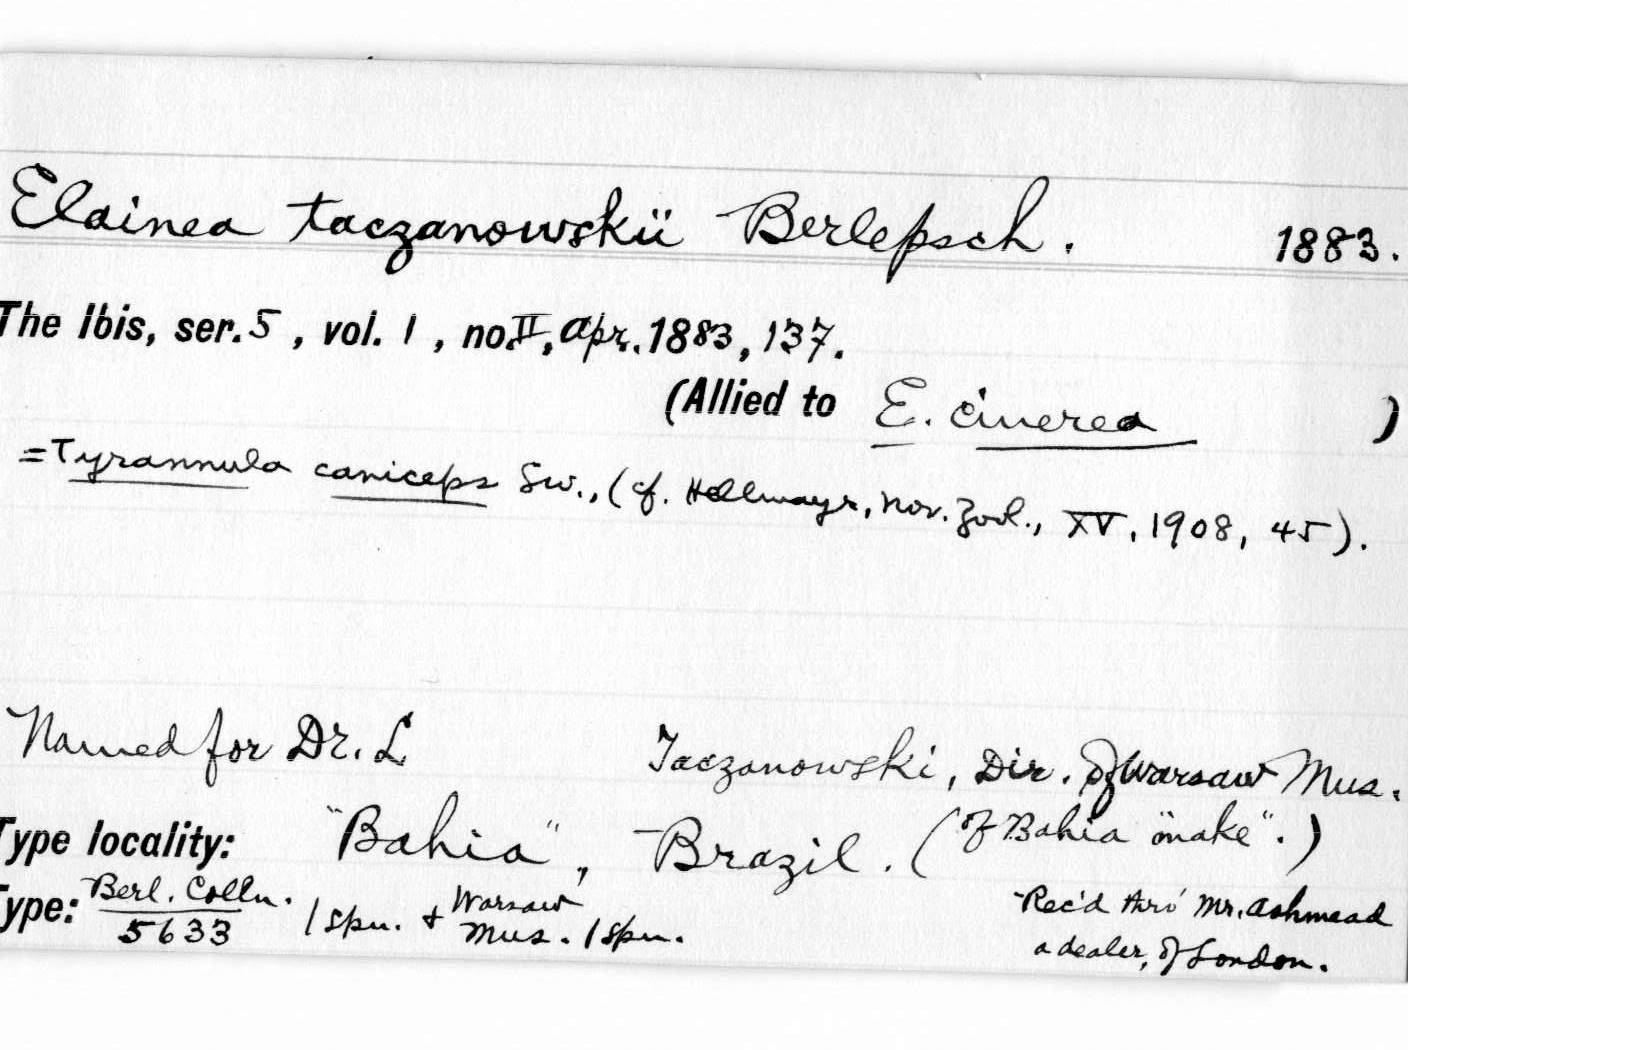 Elainea taczanowskii Berlepsch. 1883.
The Ibis, ser. 5, vol. 1, no. II, Apr. 1883, 137.
(Allied to E. cinerea )
=Tyrannula caniceps Sw., (cf. Hellmayr, Nov. Zool., XV, 1908, 45).
Named for Dr. L Taczanowski, Dir. of Warsaw Mus.
Type locality: "Bahia", Brazil. (of Bahia "make".)
Type: Berl. Colln. 5633 1 spn. + Warsaw Mus. 1 spn.
Rec'd thro' Mr. Ashmead
a dealer, of London.